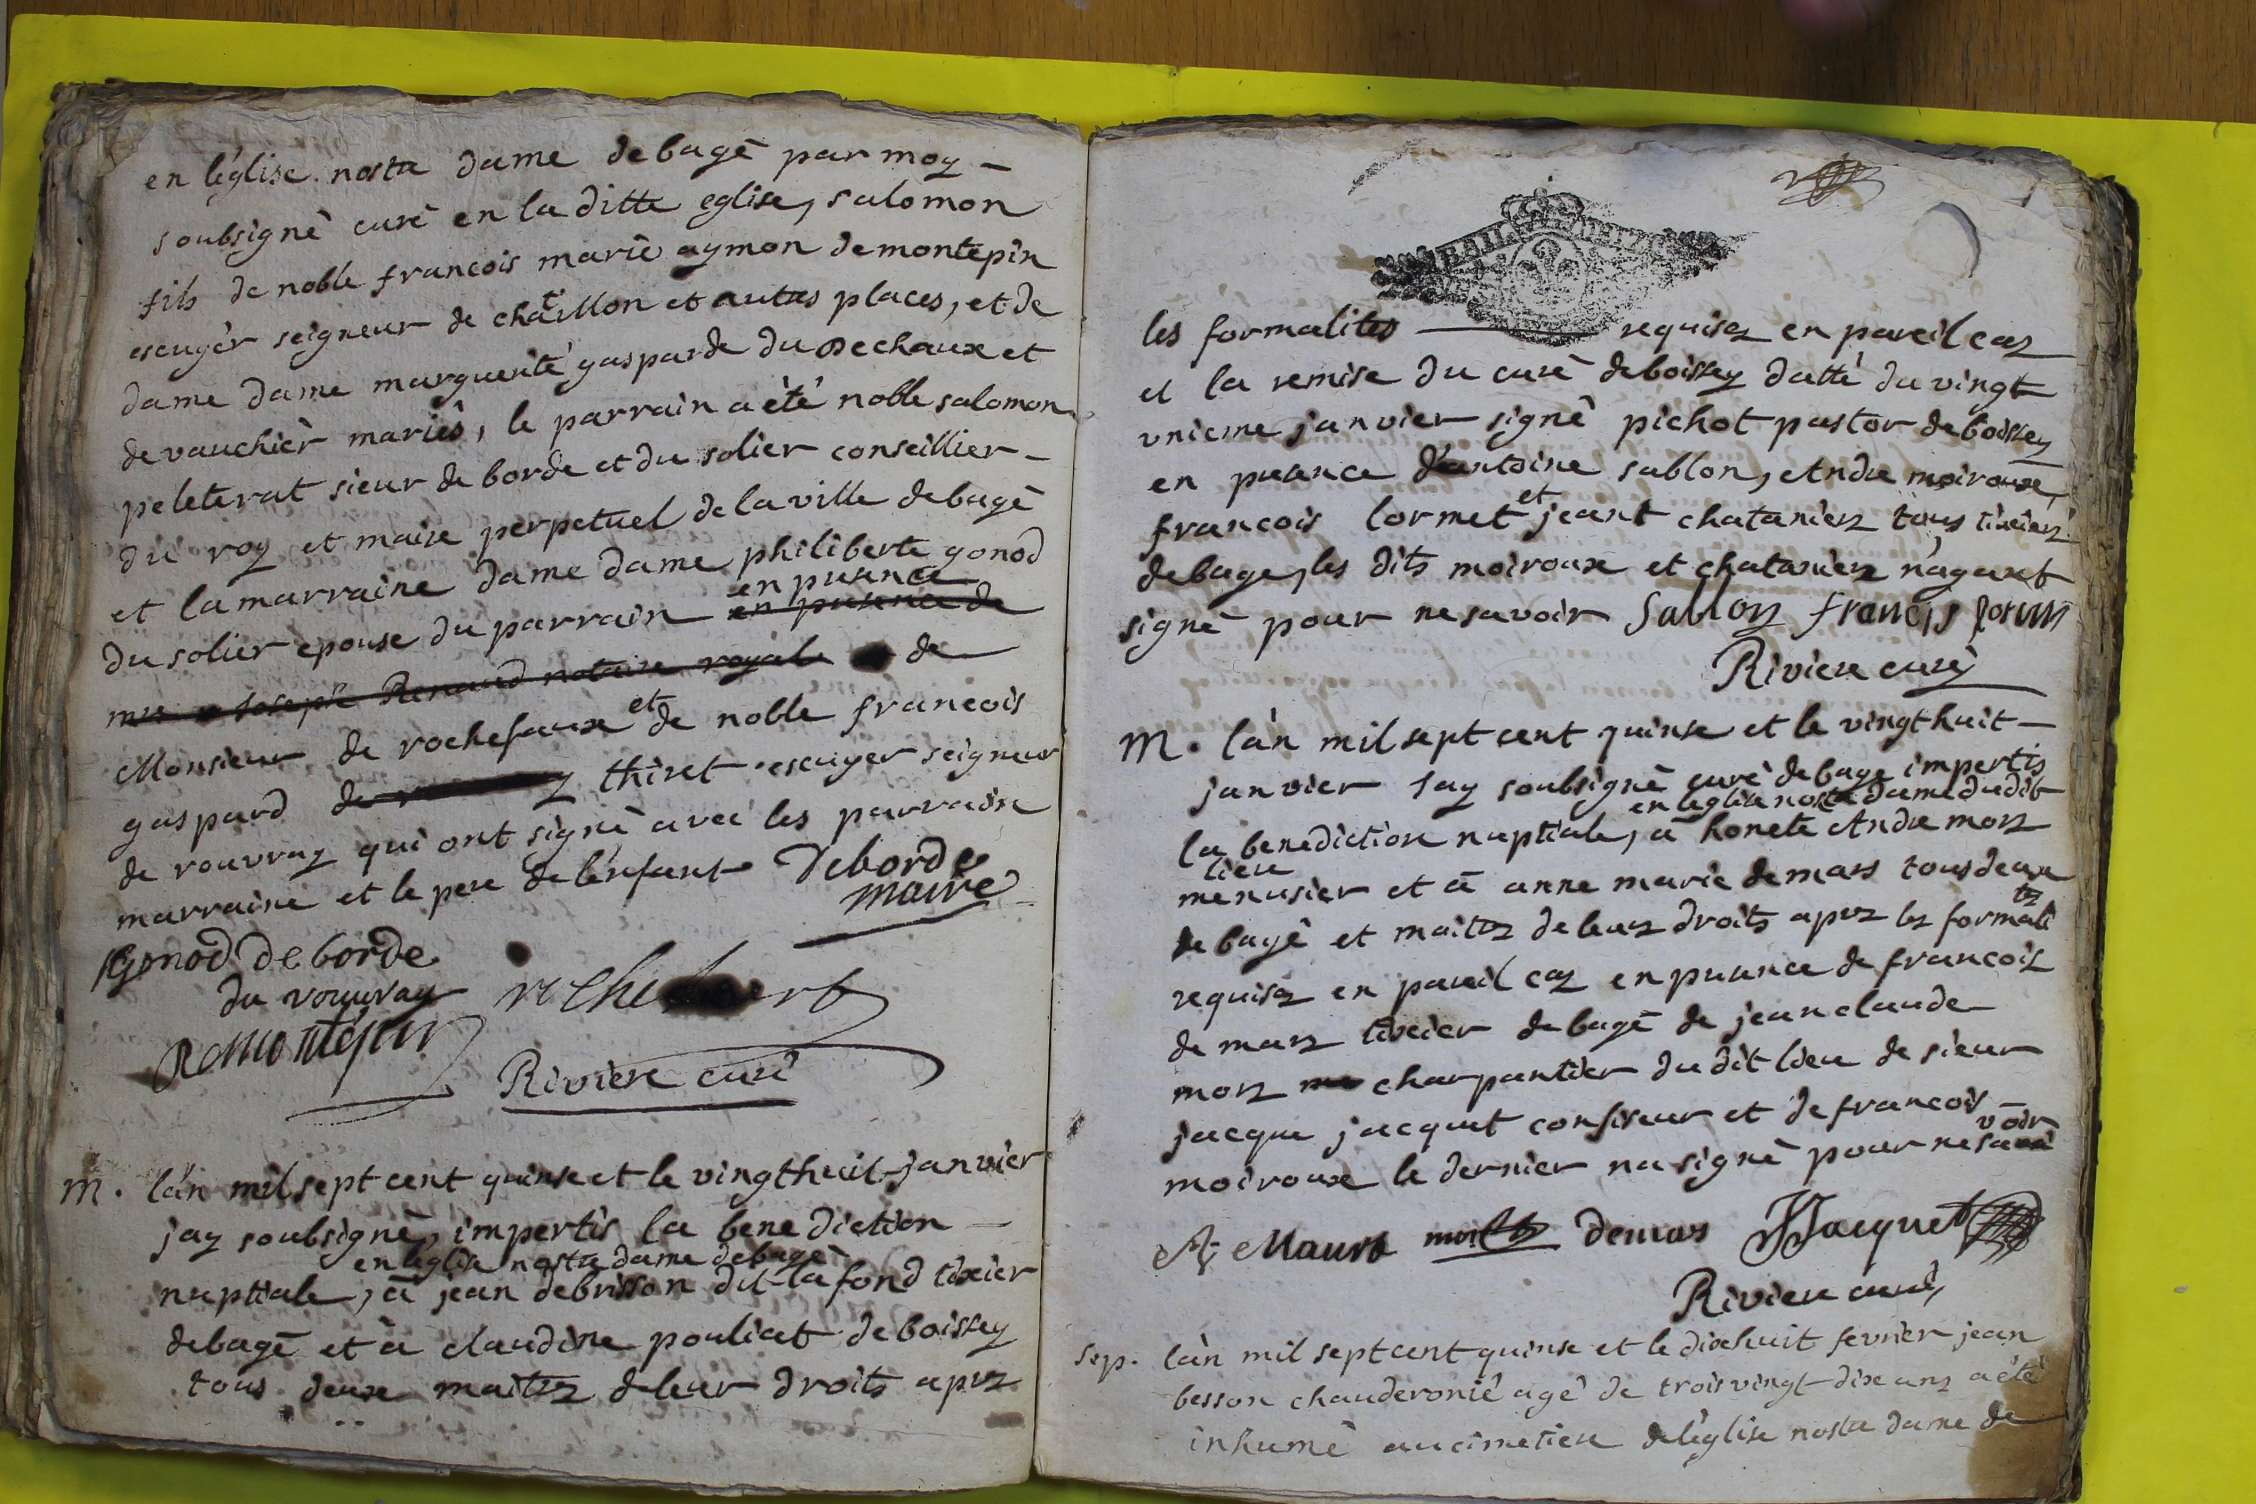 en l'église nostre dame de bagé par moy
soubsigné curé en la ditte eglise, salomon
fils de noble francois marie aymon de montepin
escuyèr seigneur de chatillon et autres places, et de
dame dame marguerite gasparde du dechaux et
de vauchièr mariés, le parrain a été noble salomon
peleterat sieur de borde et du solier conseillier
du roy et maire perpetuel de la ville de bagé
et la marraine dame dame philiberte gonod
en presence
du solier epouse du parrain en presence de
joseph Renaud notaire royale de
et
Monsieur de rochefaux de noble francois
gaspard thiret escuyer seigneur
de rouvray qui ont signé avec les parrain
marraine et le pere de l'enfant Deborde
maire
Gonod deborde
du rouvray
Demontépin
Riviere curé
M. l'an mil sept cent quinse et le vingthuit janvier
jay soubsigné, impertis la benediction
en l'eglise nostre dame de bagé
nuptiale, a jean debrisson dit lafond tixier
de bagé et à claudine pouliat de boissey
tous deux maitres de leur droits apres
les formalites requises en pareil cas
et la remise du curé de boissey datté du vingt
unieme janvier signé pichot pastor de boissey
en presence d'antoine sablon, Andre moiroux,
et
francois lormet jeant chatanier tous tixiers
de bage, les dits moiroux et chatanier n'ayant
signé pour ne savoir Sablon francis
Riviere curé
M. l'an mil sept cent quinse et le vingthuit
janvier jay soubsigné curé de bage impertis
en leglise nostre dame dudit
la benediction nuptiale, a honete Andre mors
lieu
menusier et a anne marie demars tous deux
de bagé et maitres de leurs droits apres les formali
tes
requises en pareil cas en presence de francois
de mars tixier de bagé de jean claude
mors charpantier du dit lieu de sieur
jacque jacquet confiseur et de francois
voir
moiroux le dernier na signé pour ne sa
demars JJacquet
Riviere curé
Sep. l'an mil sept cent quinse et le dixhuit fevrier jean
besson chauderonié agé de trois vingt dix ans a été
inhumé au cimetiere de l'église nostre dame de